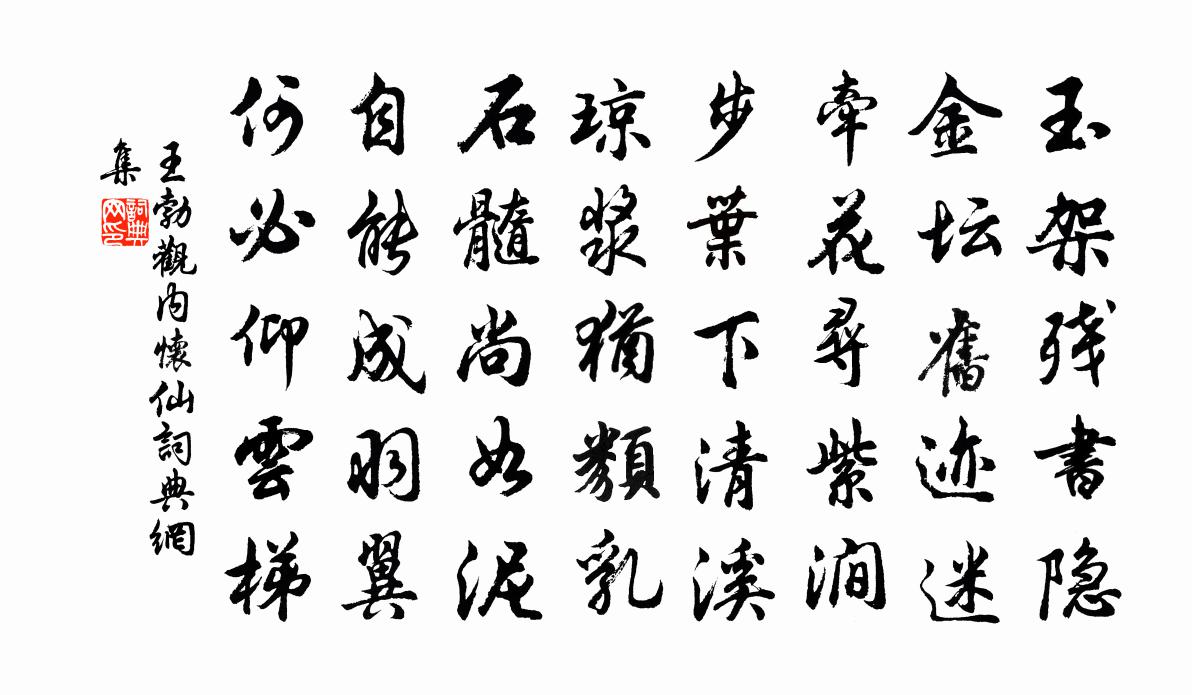 玉架残書隐
金坛舊迹迷
牽花尋紫澗
步葉下清溪
琼漿猶類乳
石髓尚如泥
自能成羽翼
何必仰雲梯
王勃觀内懷仙詞典網
集
詞典
网印